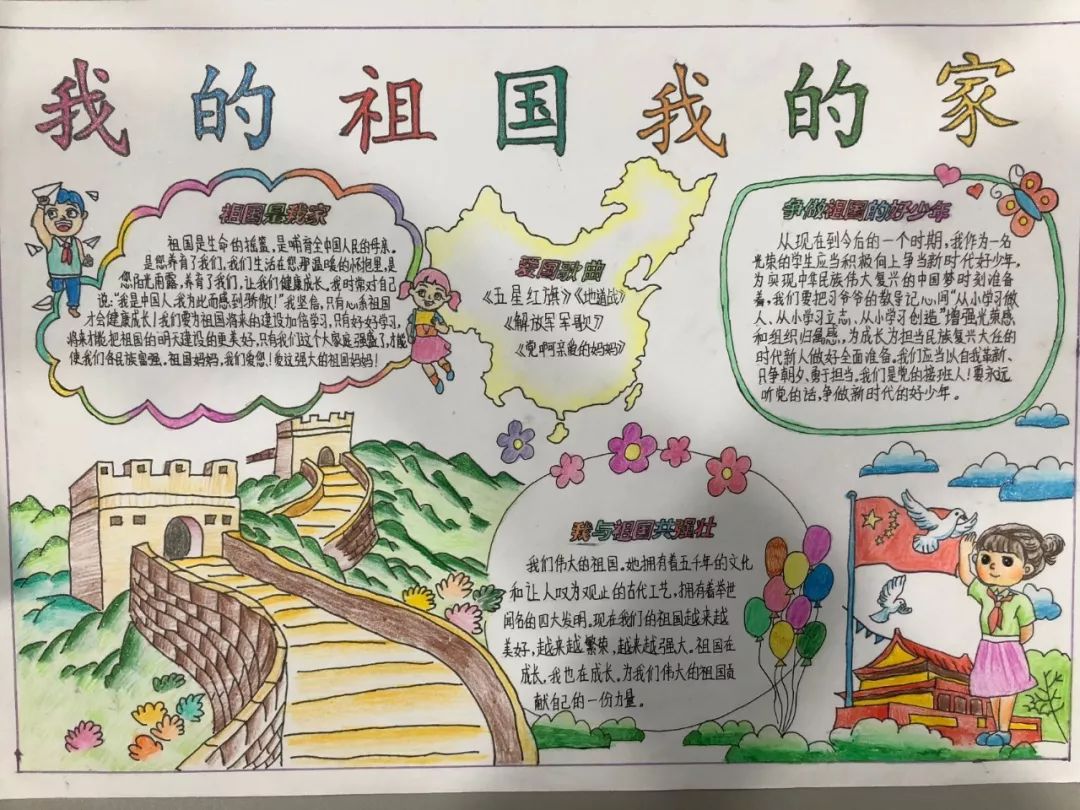 我的祖国我的家
祖国是我家
祖国是生命的摇篮,是哺育全中国人民的母亲。
是您养育了我们,我们生活在您那温暖的怀抱里,是
您阳光雨露,养育了我们,让我们健康成长。我时常对自己
说:“我是中国人,我为此而感到骄傲!”我坚信,只有心系祖国
才会健康成长!我们要为祖国将来的建设加倍学习,只有好好学习,
将来才能把祖国的明天建设的更美好,只有我们这个大家庭强盛了,才能
使我们各民族富强。祖国妈妈,我们爱您!爱这强大的祖国妈妈!
爱国歌曲
《五星红旗》《地道战》
《解放军军歌》
《党啊亲爱的妈妈》
争做祖国的好少年
从现在到今后的一个时期,我作为一名
光荣的学生应当积极向上争当新时代好少年,
为实现中华民族伟大复兴的中国梦时刻准备
着,我们要把习爷爷的教导记心间“从小学习做
人、从小学习立志、从小学习创造”增强光荣感
和组织归属感,为成长为担当民族复兴大任的
时代新人做好全面准备。我们应当以自我革新、
只争朝夕、勇于担当。我们是党的接班人!要永远
听党的话,争做新时代的好少年。
我与祖国共强壮
我们伟大的祖国,她拥有着五千年的文化
和让人叹为观止的古代工艺,拥有着举世
闻名的四大发明。现在我们的祖国越来越
美好,越来越繁荣,越来越强大。祖国在
成长,我也在成长,为我们伟大的祖国贡
献自己的一份力量。